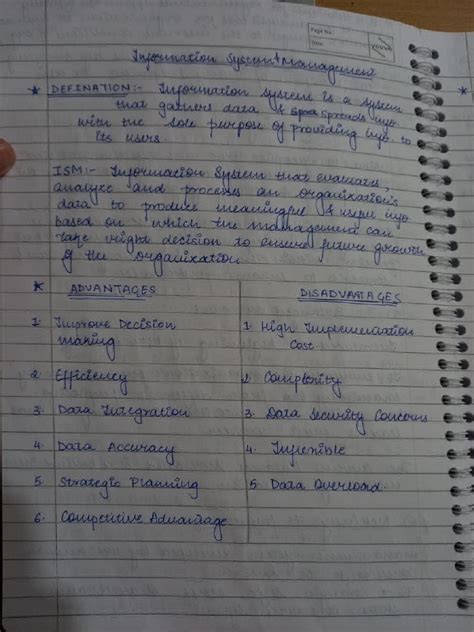 Page No.
Date:
YOUVA
Information System & Management
* DEFINATION:- Information system is a system
that gathers data & spreads info
with the sole purpose of providing info. to
its users.
ISM:- Information System that evaluates,
analyze and process an organization's
data to produce meaningful & useful info
based on which the management can
take right decision to ensure future growth
of the organization.
* ADVANTAGES
1. Improve Decision
making
2. Efficiency
3. Data Integration
4. Data Accuracy
5. Strategic Planning
6. Competitive Advantage
DISADVANTAGES
1. High Implementation
Cost.
2. Complexity
3. Data Security Concerns
4. Inflexible
5. Data Overload.